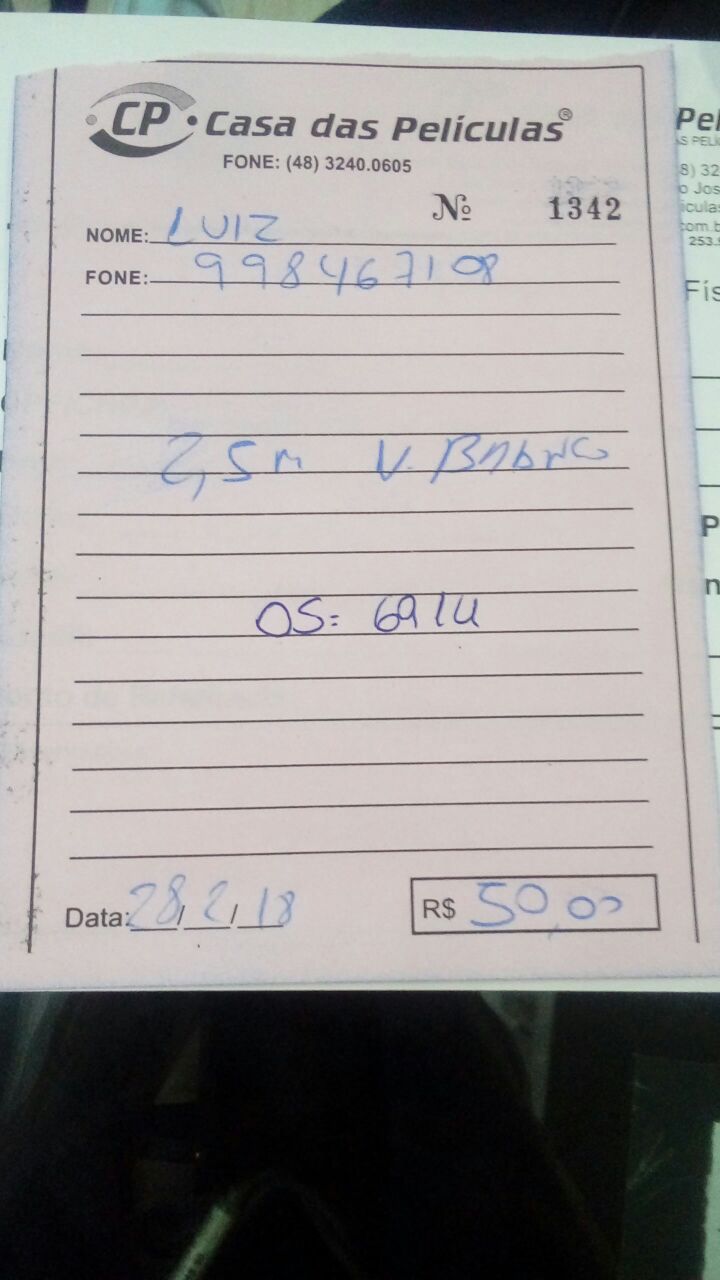 CP Casa das Películas®
FONE: (48) 3240.0605
Nº 1342
NOME: LUIZ
FONE: 998467108
2,5m V.
OS: 6914
Data: 28/2/18
R$ 50,00
Pel
AS PELÍ
8) 32
o Jos
iculas
com.b
253.9
Fís
P
n